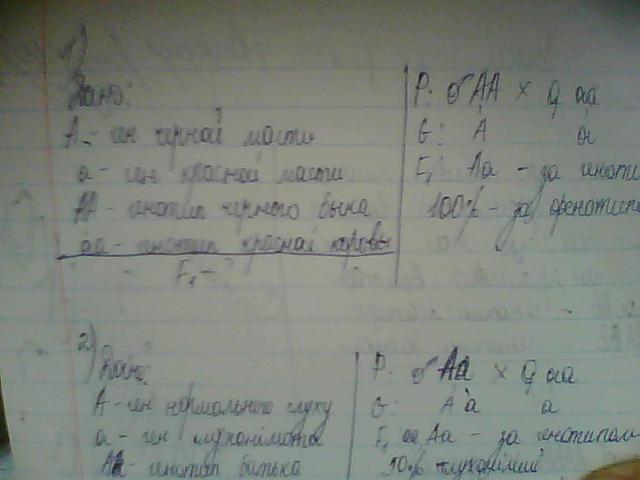 1)
Дано:
A - ген черной масти
a - ген красной масти
AA - генотип черного быка
aa - генотип красной коровы
F₁ -
P: ♂ AA × ♀ aa
G: A a
F₁ Aa - за геноти
100% - за фенотипо
2) Дано:
A - ген нормального слуху
a - ген глухонімоти
Aa - генотип батька
P: ♂ Aa × ♀ aa
G: A a a
F₁ aa, Aa - за генотипом
50% глухонімий